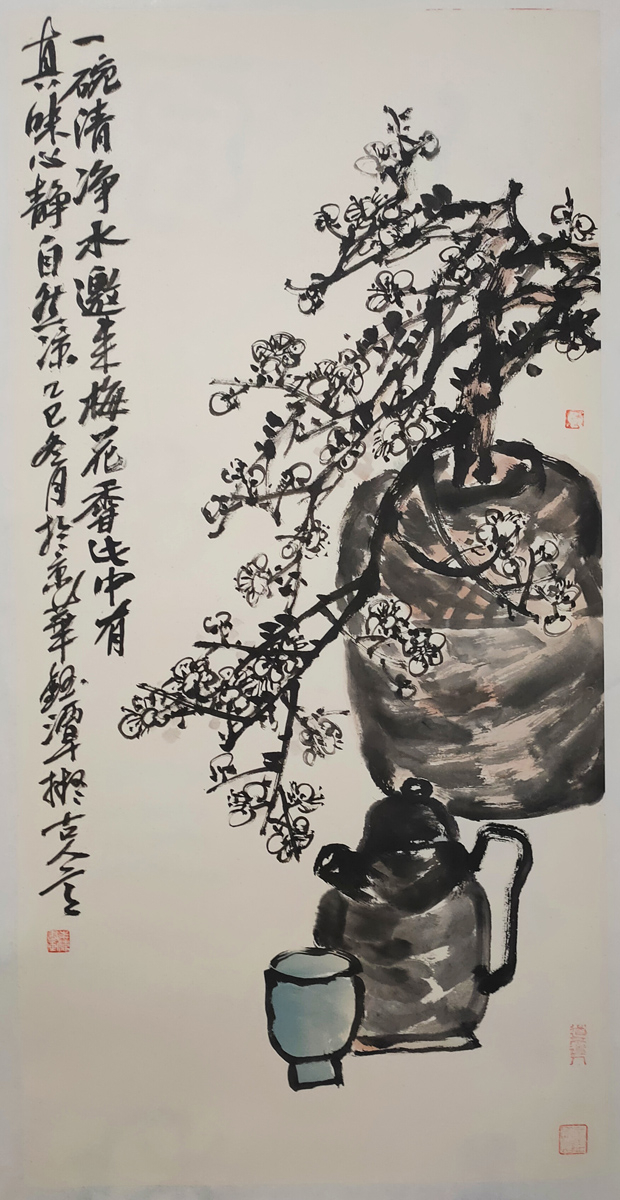 一碗清净水邀来梅花香此中有
真味心静自然凉乙巳冬月於京华玉潭拟古人意